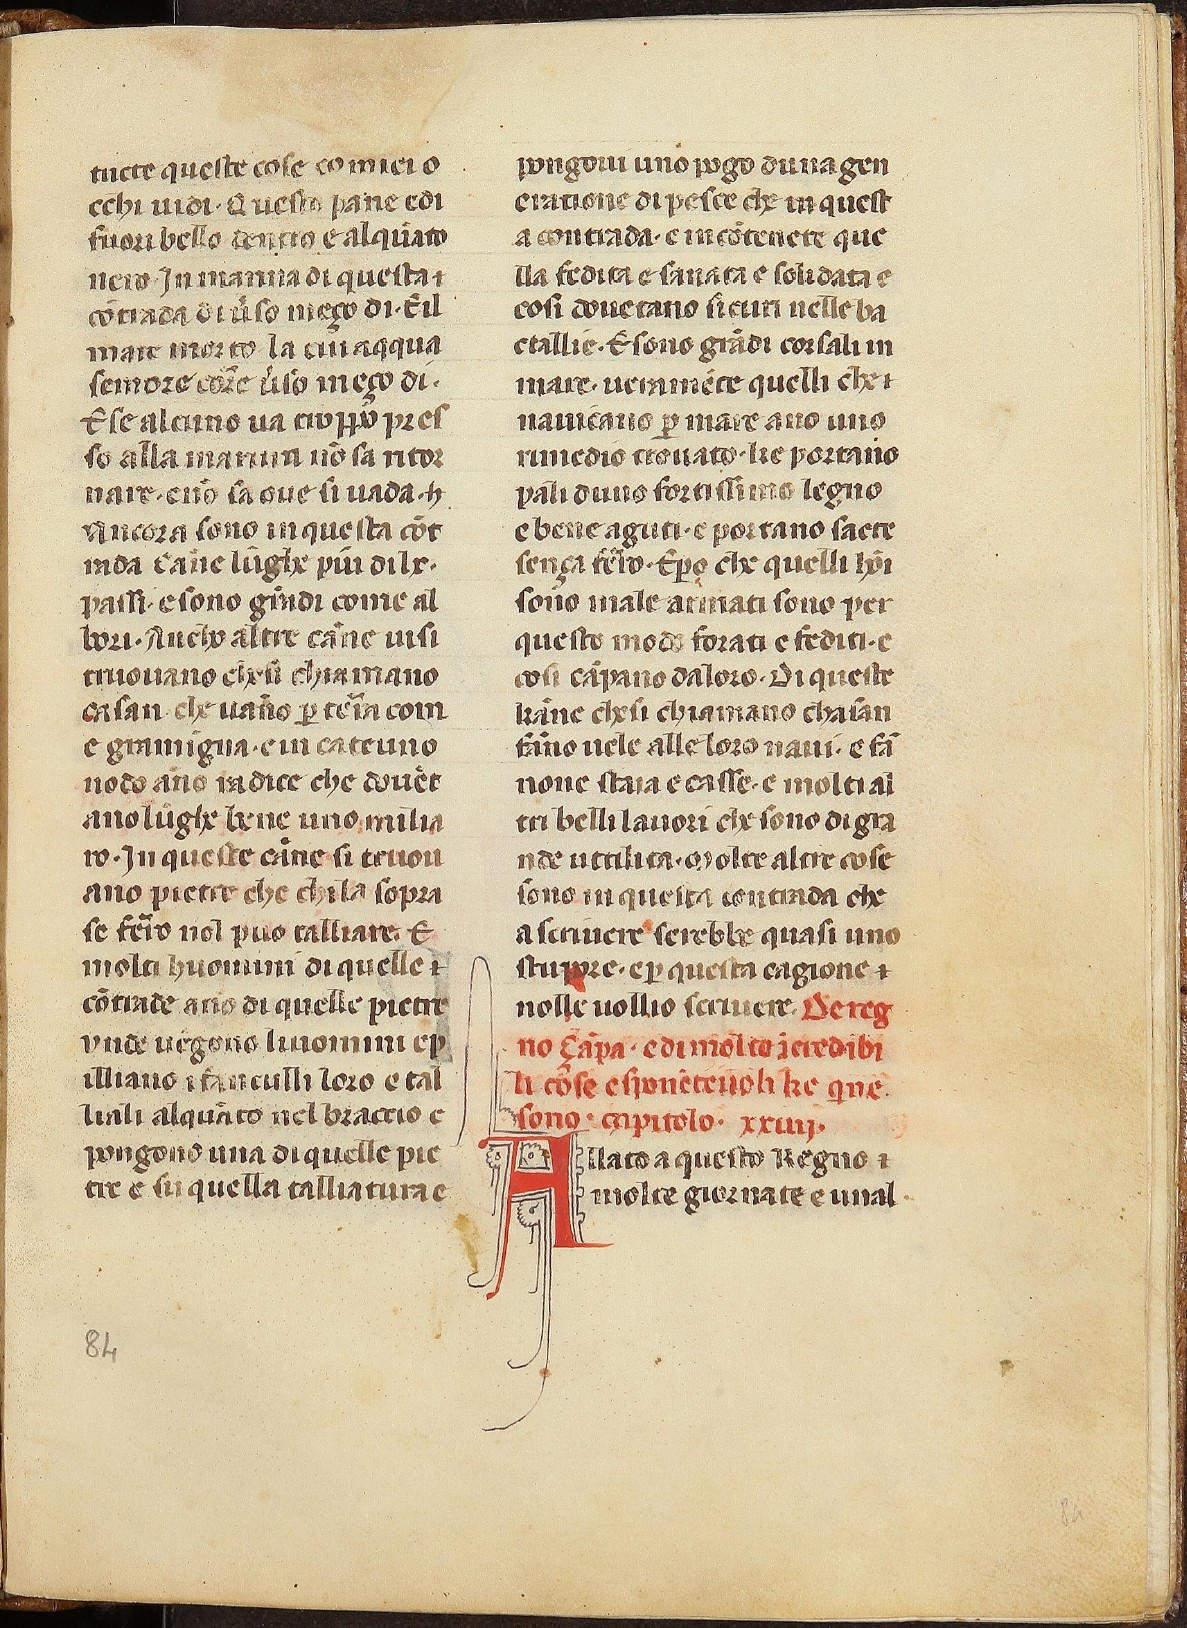 tucte queste cose co miei o
cchi uidi· Questo pane e di
fuori bello dentro e alq̄uato
nero· In marina di questa ɩ
cōtrada di ū̉so meço di· E il
mare morto la cui acqua
sempre cor̄e ū̉so meço di·
E se alcuno ua troppo pres
so alla marina nō sa ritor
nare· e nō sa oue si uada· h
Ancora sono in questa cōt
rada can̄e lūghe piu di lx·
passi· e sono grādi come al
bori· Anche altre cāne ui si
truouano che si chiamano
casan che uan̄o p̱ ter̄a com
e gramigna· e in cateuno
nodo an̄o radice che douēt
ano lūghe bene uno milia
ro· In queste cāne si truou
ano pietre che chi la sopra
se fer̄o nol puo talliare· E
molti huomini di quelle ɩ
cōtrade ano di quelle pietre
vnde uēgono li uomini e p̱
illiano i fanciulli loro e tal
liali alquāto nel braccio e
pongono una di quelle pie
tre e su quella talliatura e
pongoui uno pogo duna gen
eratione di pesce che in quest
a contrada· e incōtenete que
lla fedita e sanata e solidata e
cosi douetano sicuri nelle ba
ctallie· E sono grādi corsali in
mare· ueramēte quelli che ɩ
nauicano p̱ mare ano uno
rimedio trouato· ke portano
pali duno fortissimo legno
e bene aguti· e portano saete
sença fer̄o· E p̱o che quelli
sono male armati sono per
questo modo forati e fediti· e
cosi cāpano da loro· Di queste
kāne che si chiamano chasan
fan̄o uele alle loro naui· e fā
none staia e casse· e molti al
tri belli lauori che sono di gra
nde uttilita· Molte altre cose
sono in questa contrada che
a scriuere serebbe quasi uno
stupore· e p̱ questa cagione ɩ
nolle uollio scriuere· De reg
no çāpa· e di molte īcredibi
li cose e
sono· capitolo· xxiiij·
Allato a questo Regno ɩ
molte giornate e unal
84
84